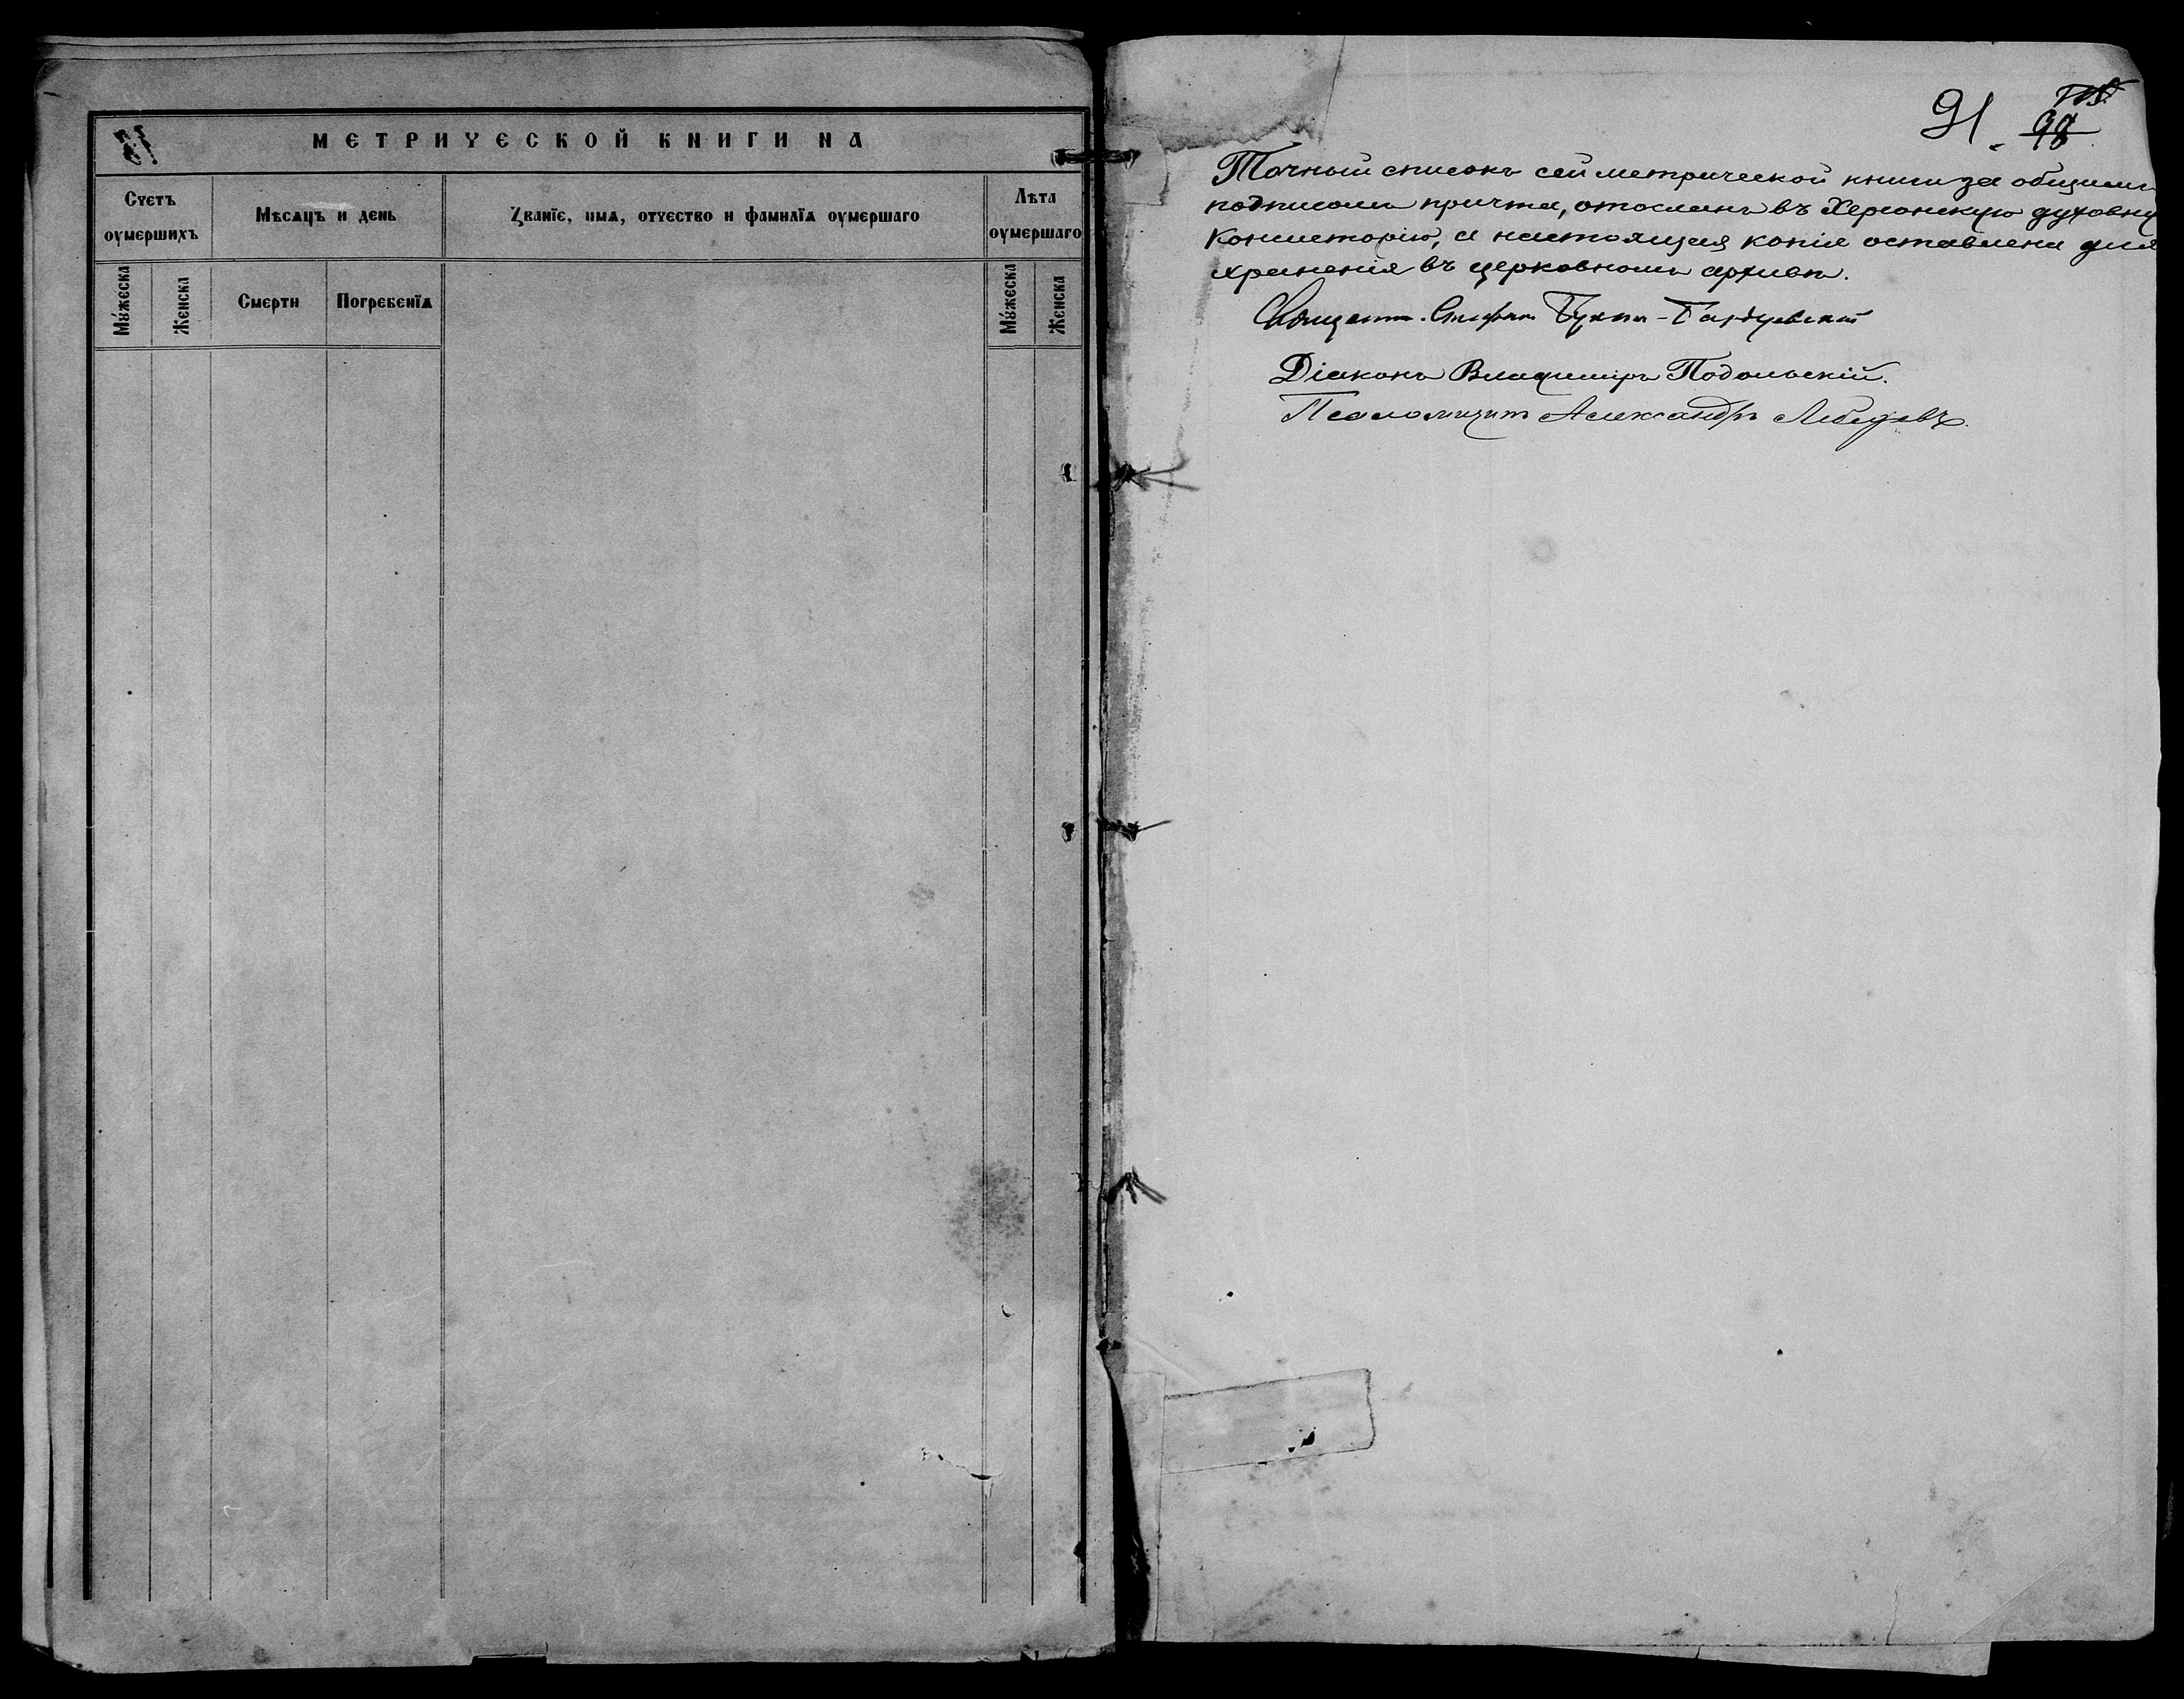 МЕТРИЧЕСКОЙ КНИГИ НА
Счетъ оумершихъ
Мѣсяцъ и день
Званїе, имѧ, отчество и фамилїѧ оумершаго
Лѣта оумершаго
Мꙋ́жеска
Женска
Смерти
Погребенїѧ
Мꙋ́жеска
Женска
91
98
Точный списокъ сей метрической книги за общимъ
подписомъ причта, отосланъ въ Херсонскую духовную
Консисторію, а настоящая копія оставлена для
храненія въ церковномъ архивѣ.
Священ. Стефанъ
Діаконъ Владиміръ Подольскій.
Псаломщикъ Александръ Лебедевъ.